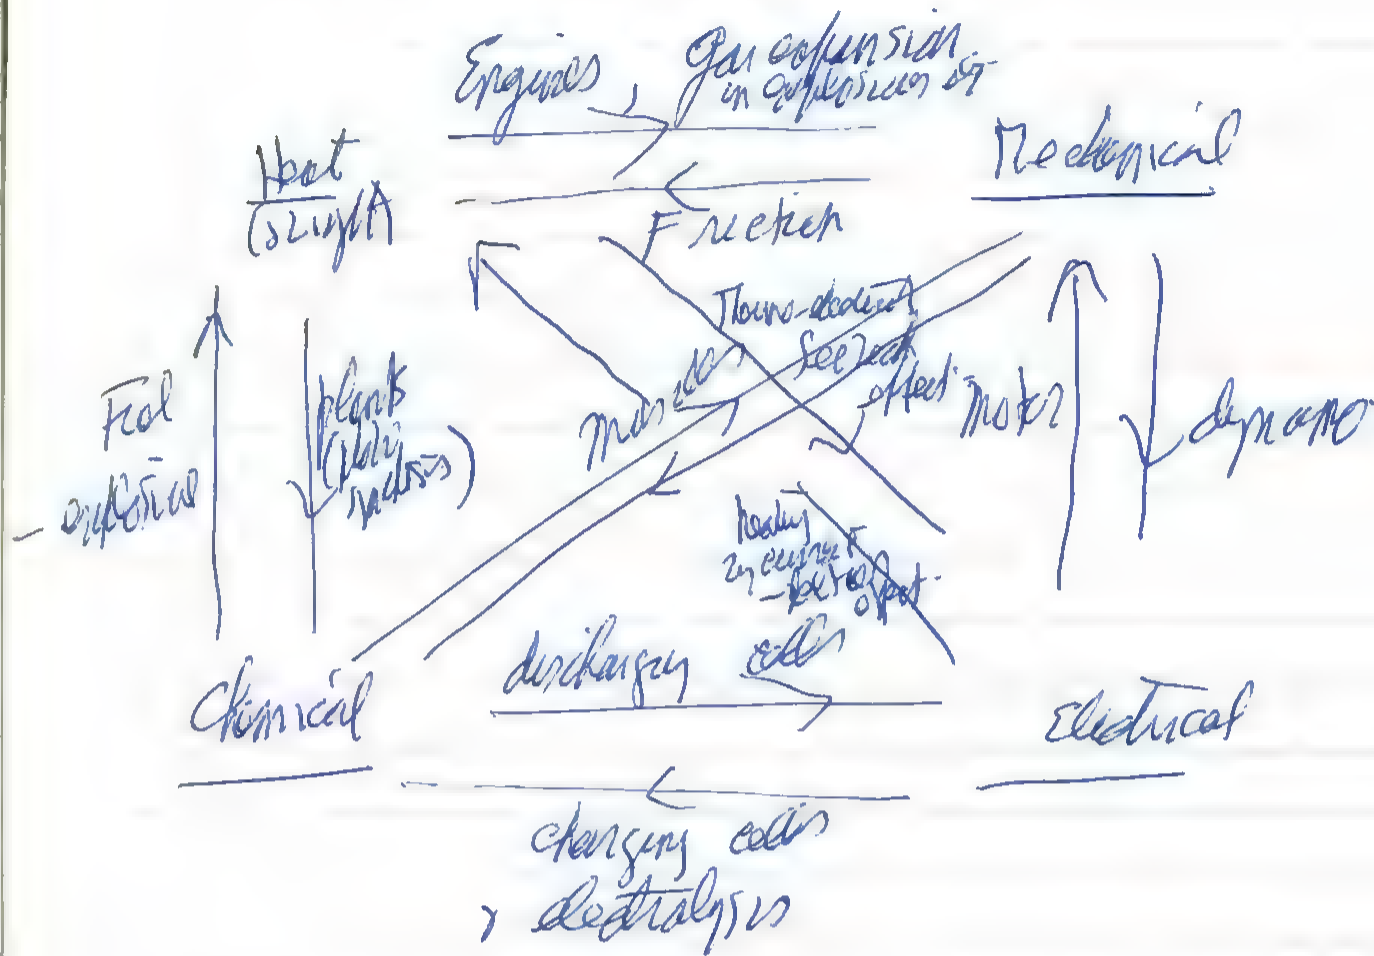 Engines
Gas expansion
in explosions etc
Heat
(& light)
Mechanical
Friction
Thermo-electricity
Seebeck
effect
Muscles
Fuel
- explosives
plants
(photo
synthesis)
motor
dynamo
heating
by current
effect
discharging cells
Chemical
Electrical
charging cells
electrolysis